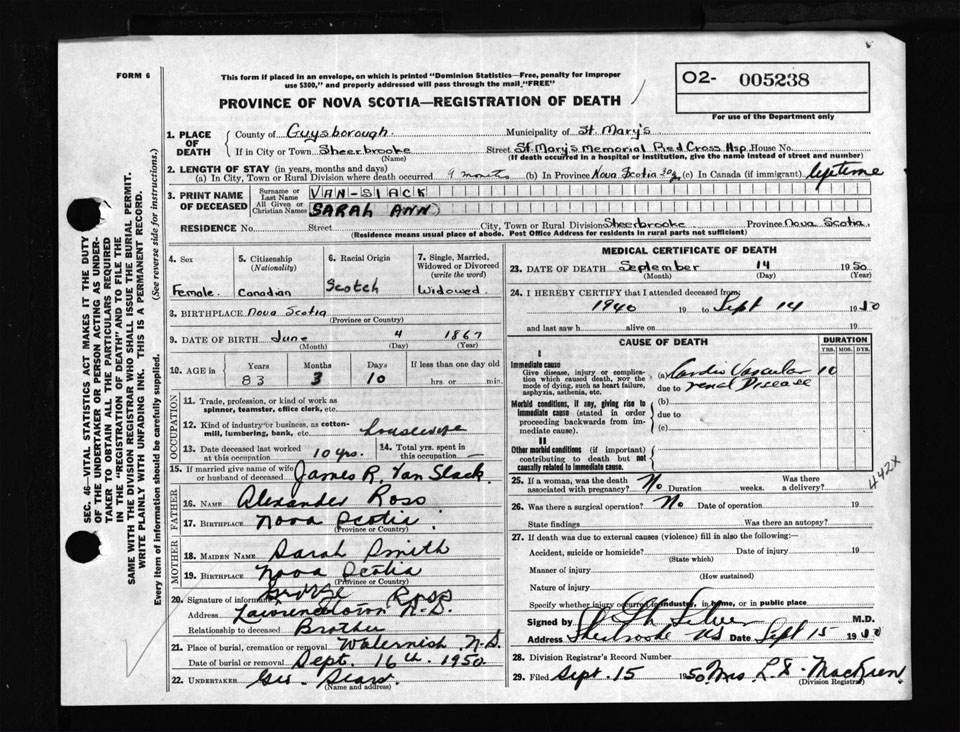 FORM 6
This form if placed in an envelope, on which is printed "Dominion Statistics—Free, penalty for improper
use $300," and properly addressed will pass through the mail "FREE"
PROVINCE OF NOVA SCOTIA—REGISTRATION OF DEATH
O2- 005238
For use of the Department only
SEC. 46—VITAL STATISTICS ACT MAKES IT THE DUTY
OF THE UNDERTAKER OR PERSON ACTING AS UNDER-
TAKER TO OBTAIN ALL THE PARTICULARS REQUIRED
IN THE "REGISTRATION OF DEATH" AND TO FILE THE
SAME WITH THE DIVISION REGISTRAR WHO SHALL ISSUE THE BURIAL PERMIT.
WRITE PLAINLY WITH UNFADING INK. THIS IS A PERMANENT RECORD.
Every item of information should be carefully supplied. (See reverse side for instructions.)
1. PLACE OF DEATH
County of Guysborough Municipality of St. Mary's
If in City or Town Sheerbrooke (Name) Street St. Mary's Memorial Red Cross Hsp. House No.
(If death occurred in a hospital or institution, give the name instead of street and number)
2. LENGTH OF STAY (in years, months and days)
(a) In City, Town or Rural Division where death occurred 9 months (b) In Province Nova Scotia (c) In Canada (if immigrant) lifetime
3. PRINT NAME OF DECEASED
Surname or Last Name VAN-SLACK
All Given or Christian Names SARAH ANN
RESIDENCE No. Street City, Town or Rural Division Sheerbrooke Province Nova Scotia
(Residence means usual place of abode. Post Office Address for residents in rural parts not sufficient)
4. Sex Female
5. Citizenship (Nationality) Canadian
6. Racial Origin Scotch
7. Single, Married, Widowed or Divorced (write the word) Widowed
8. BIRTHPLACE Nova Scotia
(Province or Country)
9. DATE OF BIRTH June 4 1867
(Month) (Day) (Year)
10. AGE in Years 83 Months 3 Days 10 If less than one day old hrs. or min.
OCCUPATION
11. Trade, profession, or kind of work as
spinner, teamster, office clerk, etc.
12. Kind of industry or business, as cotton-
mill, lumbering, bank, etc. housewife
13. Date deceased last worked at this occupation 10 yrs. 14. Total yrs. spent in this occupation —
15. If married give name of wife or husband of deceased James R. Van Slack
FATHER
16. NAME Alexander Ross
17. BIRTHPLACE Nova Scotia
(Province or Country)
MOTHER
18. MAIDEN NAME Sarah Smith
19. BIRTHPLACE Nova Scotia
(Province or Country)
20. Signature of informant George Ross
Address Lawrencetown N.S.
Relationship to deceased Brother
21. Place of burial, cremation or removal Waternish N.S.
Date of burial or removal Sept. 16th. 1950
22. UNDERTAKER Geo.
(Name and address)
MEDICAL CERTIFICATE OF DEATH
23. DATE OF DEATH September 14 1950
(Month) (Day) (Year)
24. I HEREBY CERTIFY that I attended deceased from:
1940 19 to Sept 14 1950
and last saw h alive on 19
CAUSE OF DEATH
DURATION
YRS. MOS. DYS.
I
Immediate cause
Give disease, injury or complica-
tion which caused death, not the
mode of dying, such as heart failure,
asphyxia, asthenia, etc.
(a) Cardio Vascular 10
due to renal Disease
Morbid conditions, if any, giving rise to
immediate cause (stated in order
proceeding backwards from im-
mediate cause).
(b)
due to
(c)
II
Other morbid conditions (if important)
contributing to death but not
causally related to immediate cause.
442X
25. If a woman, was the death associated with pregnancy? No Duration weeks. Was there a delivery?
26. Was there a surgical operation? No Date of operation 19
State findings Was there an autopsy?
27. If death was due to external causes (violence) fill in also the following:—
Accident, suicide or homicide? Date of injury 19
(State which)
Manner of injury
(How sustained)
Nature of injury
Specify whether injury occurred in industry, in home, or in public place
Signed by Silver M.D.
Address Sherbrooke NS Date Sept 15 1950
28. Division Registrar's Record Number
29. Filed Sept. 15 1950 Mrs
(Division Registrar)